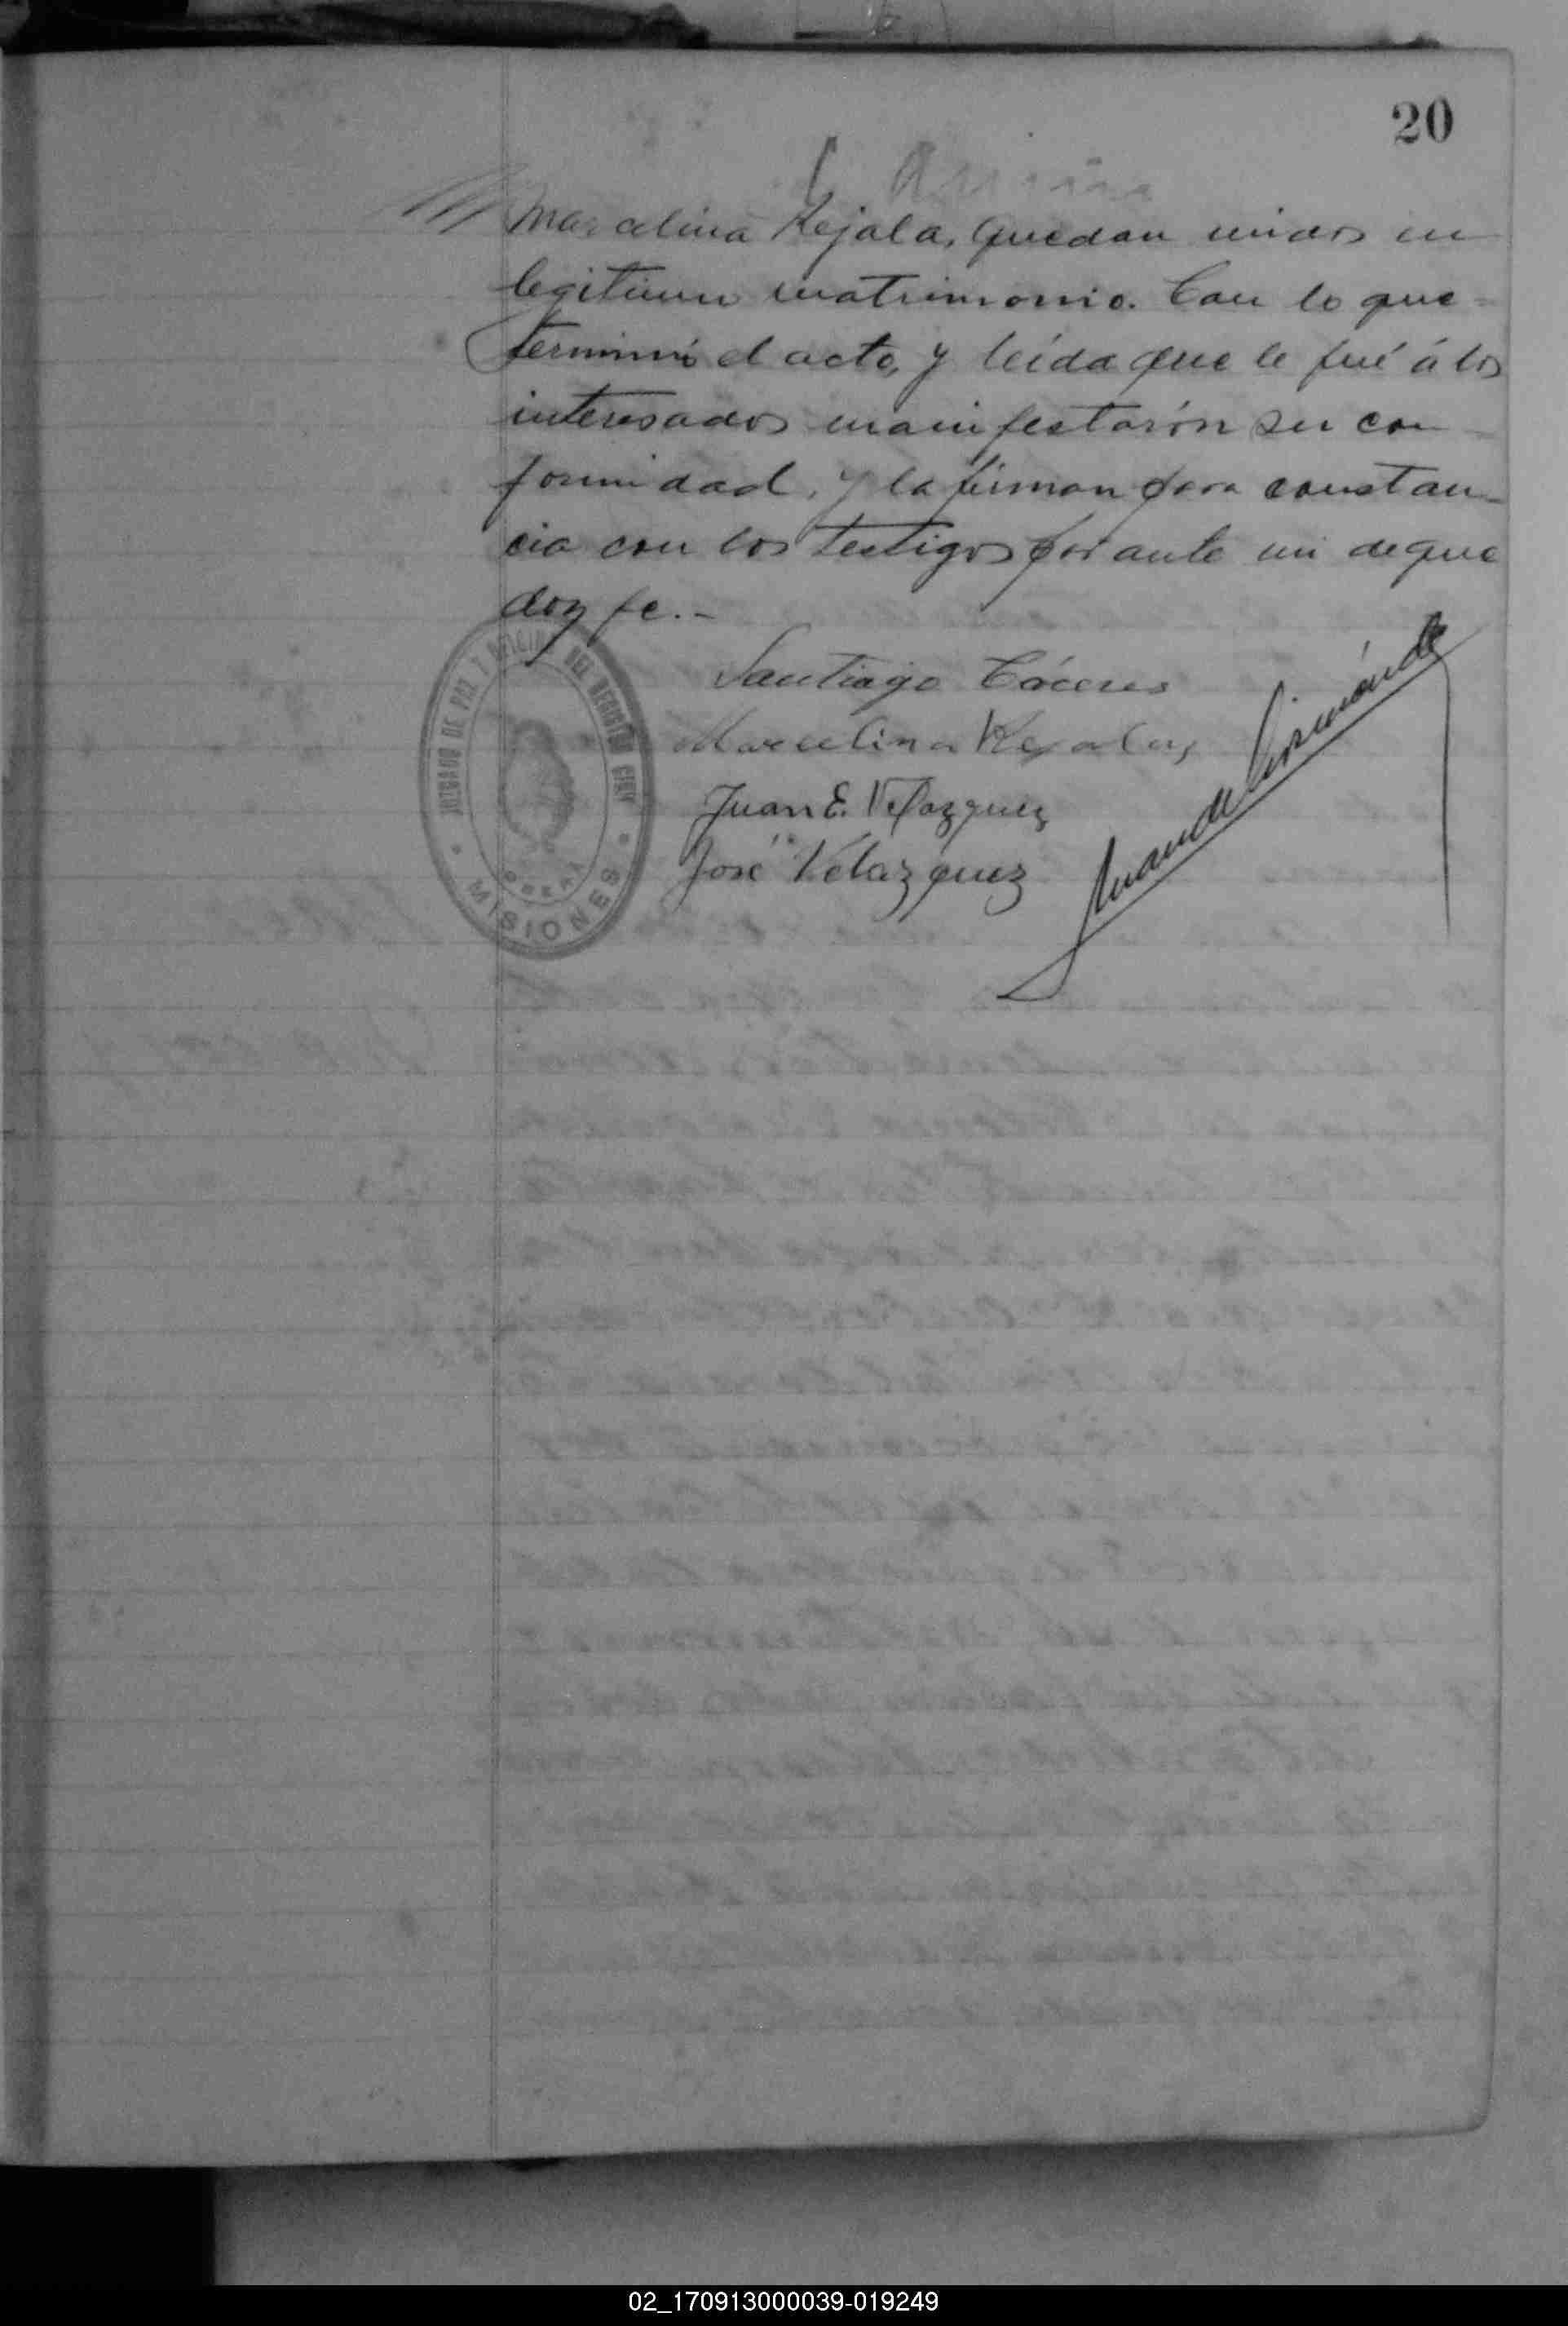 20
Marcelina Rejala, quedan unidos en
legitimo matrimonio. Con lo que
terminó el acto, y leída que le fué á los
interesados manifestarón su con
formidad, y la firman para constan-
cia con los testigos por ante mi de que
doy fe.-
Santiago Cáceres
Marcelina Rejala
Juan E. Velazquez
José Velazquez
JUZGADO DE PAZ Y OFICINA DEL REGISTRO CIVIL
OBERA
MISIONES
02_170913000039-019249